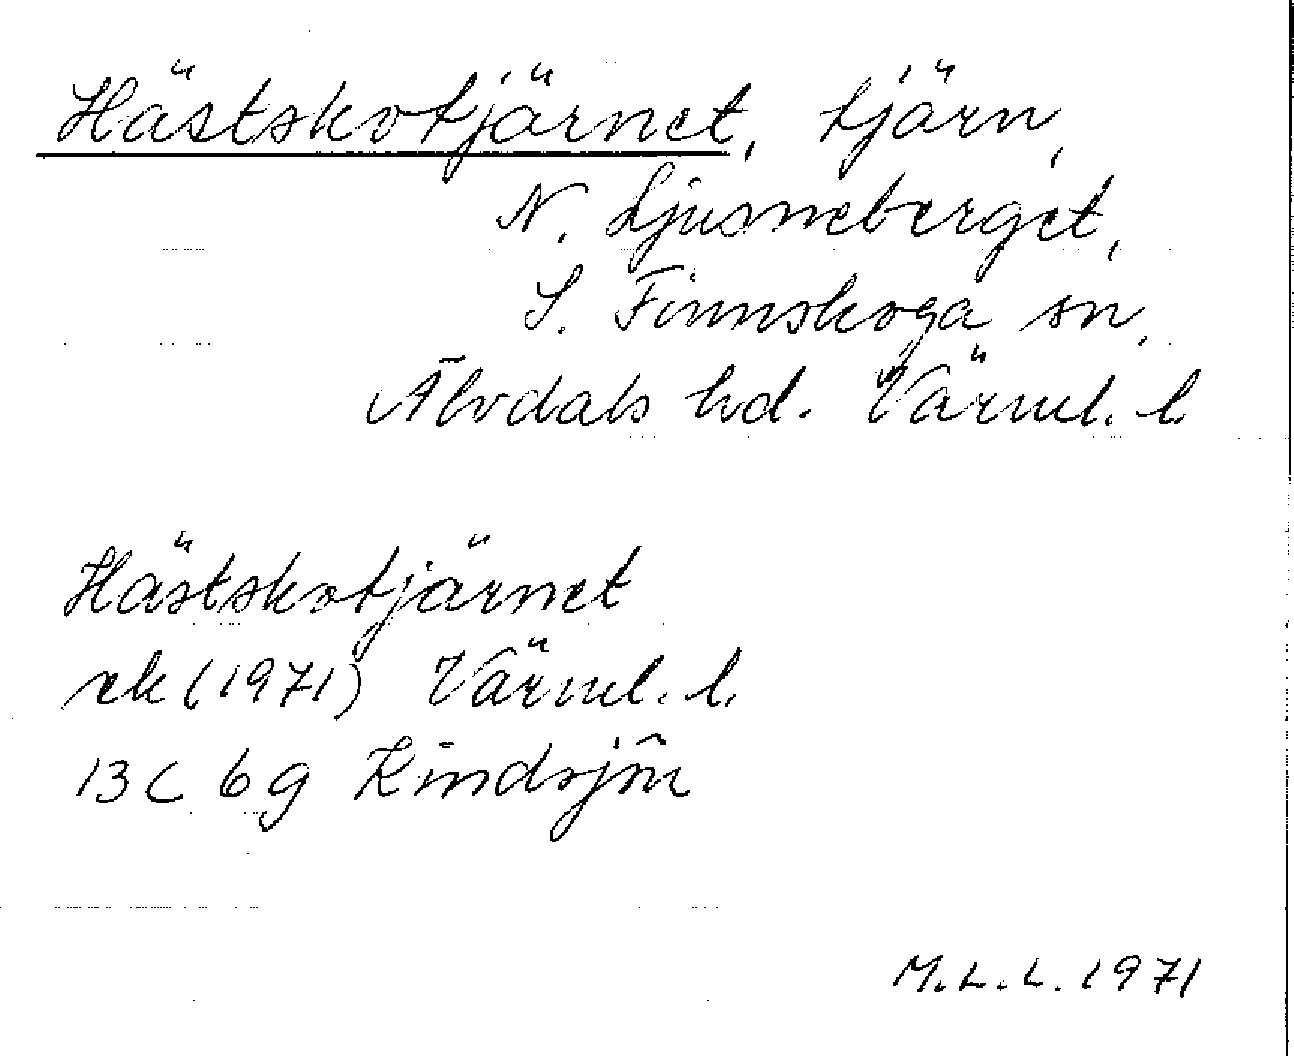 Hästskotjärnet, tjärn,
N. Ljusneberget,
S. Finnskoga sn,
Älvdals hd. Värml. l.
Hästskotjärnet
ek (1971) Värml. l.
13 C 6 g Kindsjön
M.L.L. 1971